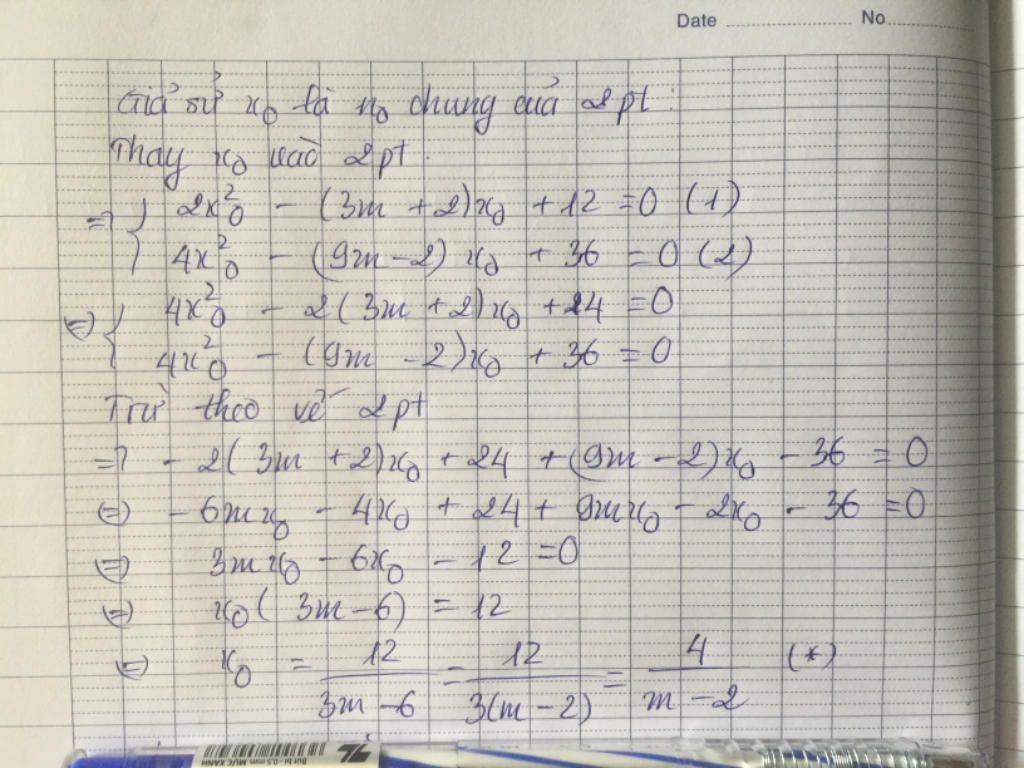 Date No
Giả sử x₀ là n₀ chung của 2 pt :
Thay x₀ vào 2 pt.
=> { 2x₀² - (3m + 2)x₀ + 12 = 0 (1)
4x₀² - (9m - 2) x₀ + 36 = 0 (2)
<=> { 4x₀² - 2(3m + 2)x₀ + 24 = 0
4x₀² - (9m - 2)x₀ + 36 = 0
Trừ theo vế 2 pt
=> - 2(3m + 2)x₀ + 24 + (9m - 2)x₀ - 36 = 0
<=> - 6mx₀ - 4x₀ + 24 + 9mx₀ - 2x₀ - 36 = 0
<=> 3mx₀ - 6x₀ - 12 = 0
<=> x₀(3m - 6) = 12
<=> x₀ = 12/(3m - 6) = 12/(3(m - 2)) = 4/(m - 2) (*)
Bút bi - 0,5 mm MỰC XANH